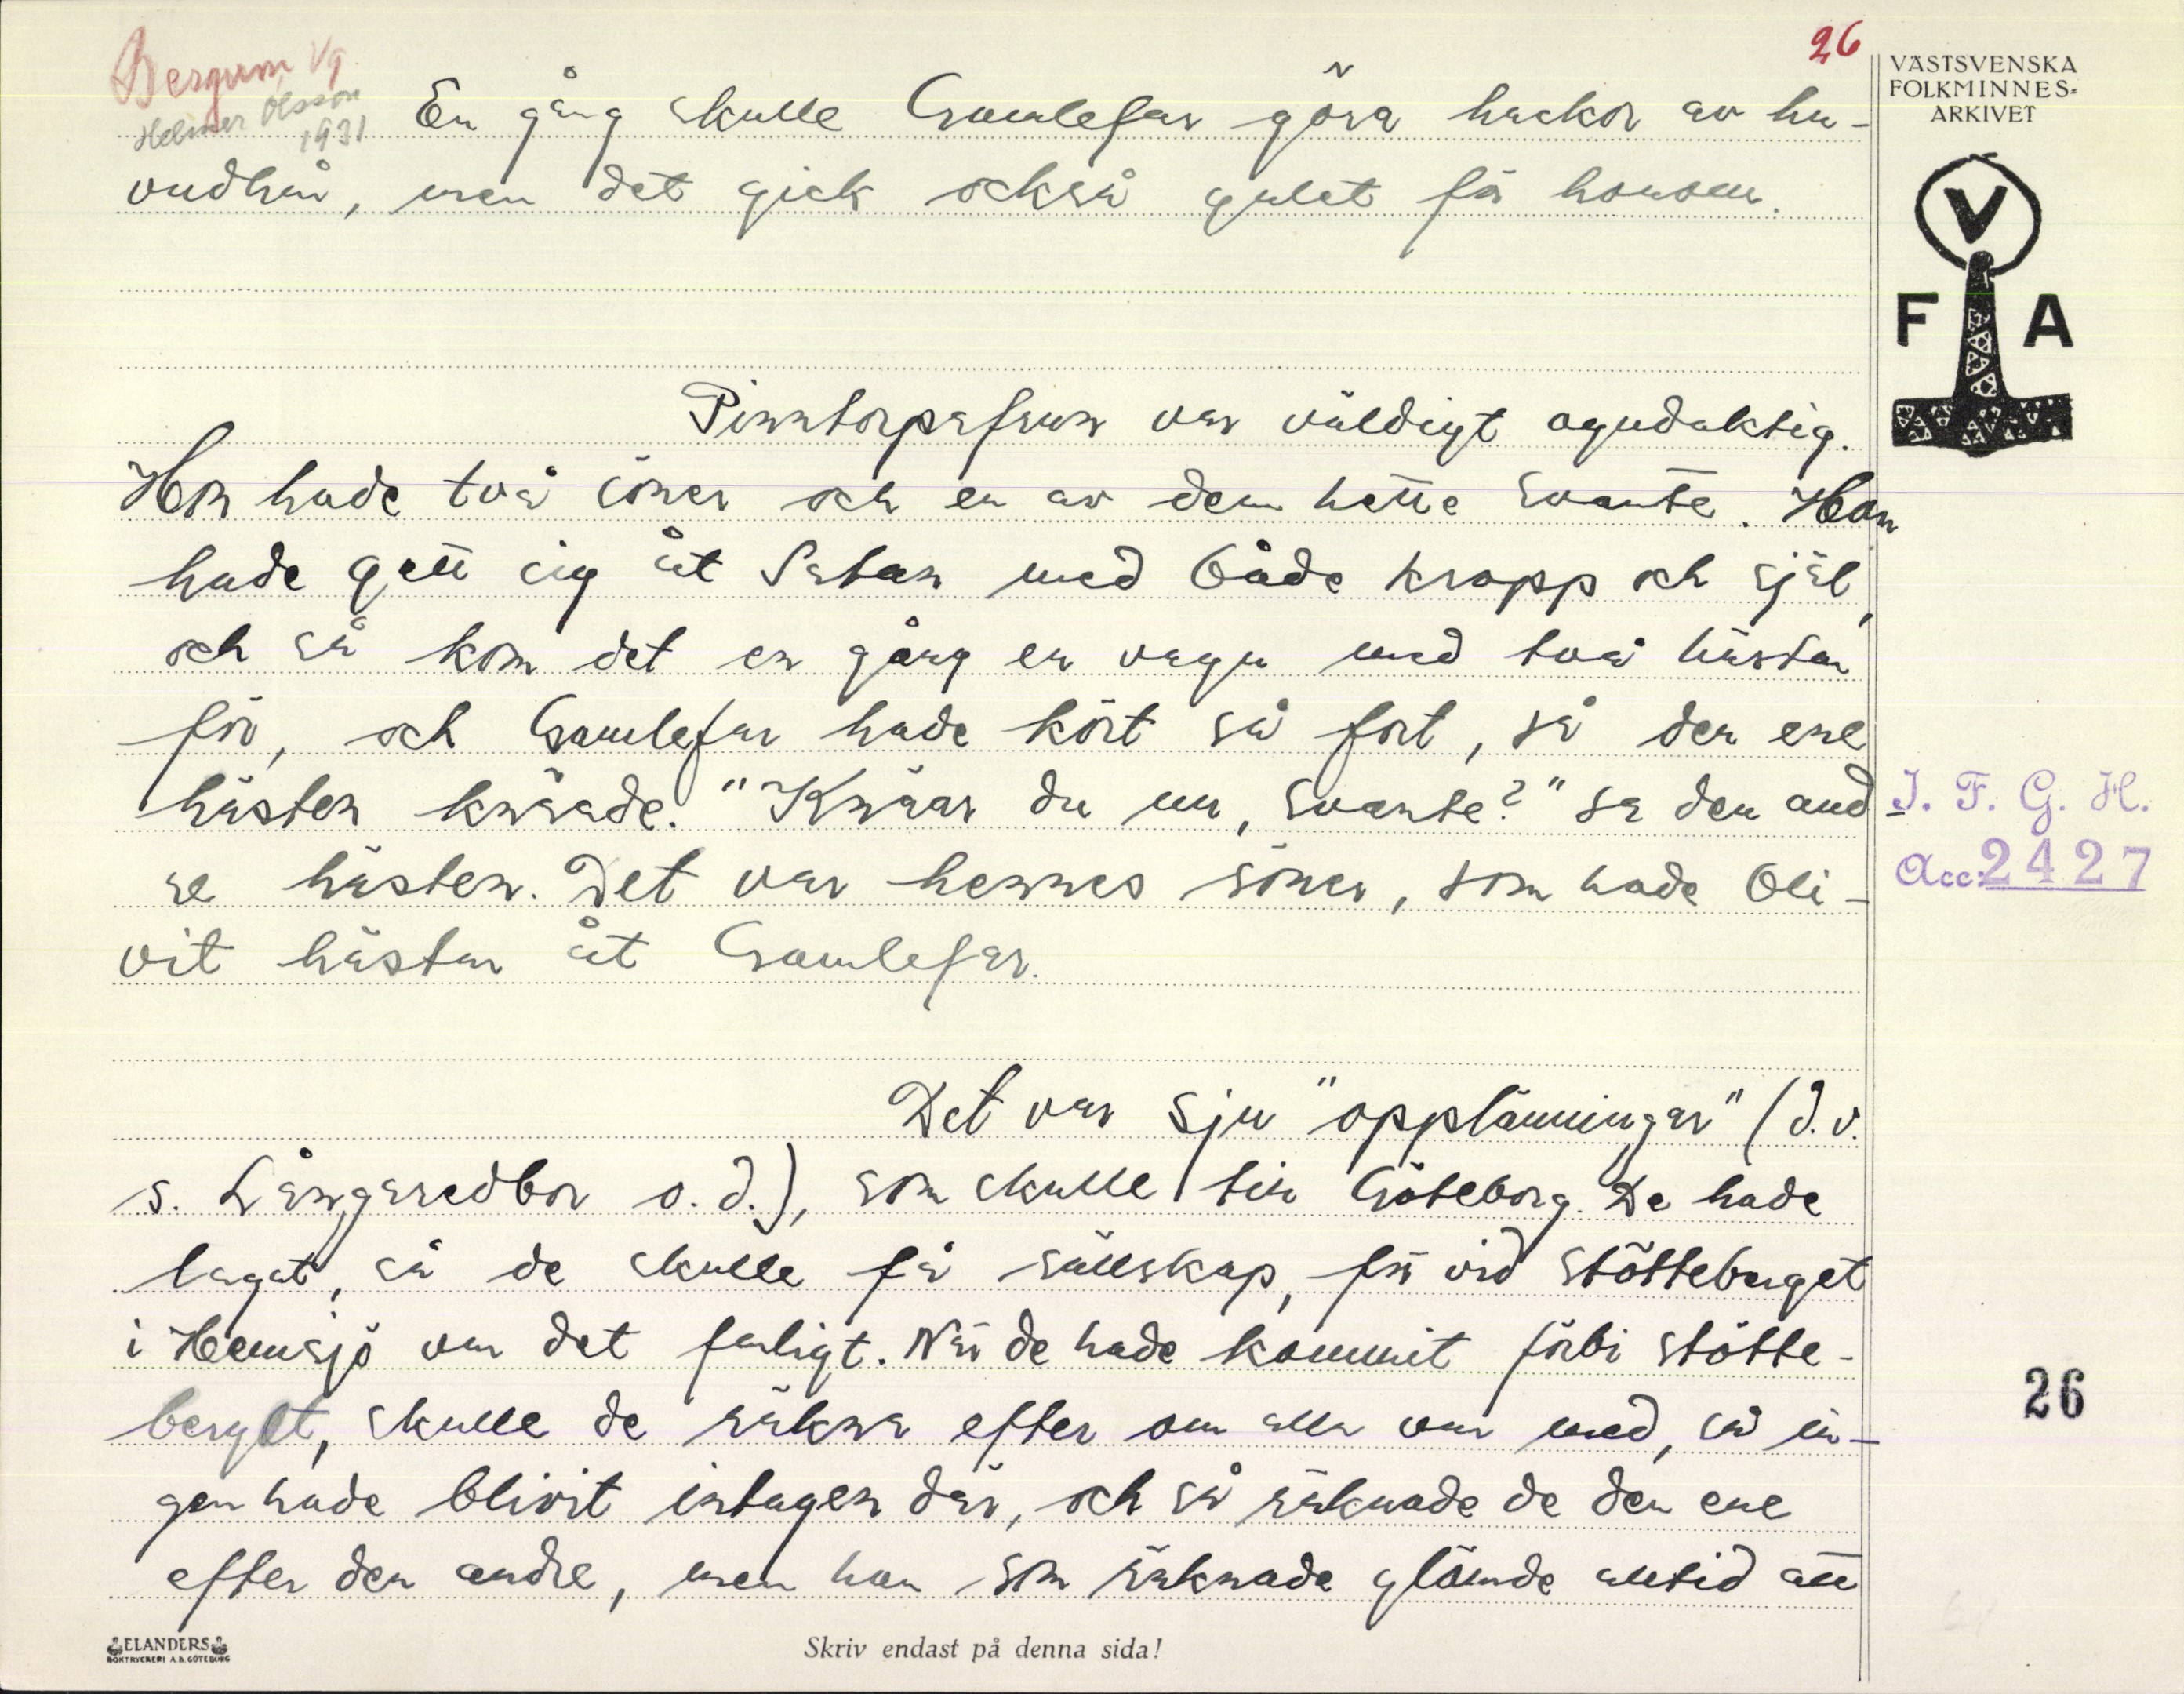 26
Bergum Vg
Helmer Olsson
1931
VÄSTSVENSKA
FOLKMINNES-
ARKIVET
V
F A
En gång skulle Gamlefar göra hackor av hu-
vudhår, men det gick också galet för honom.
Pinntorpafrun var väldigt ogudaktig.
Hon hade två söner och en av dem hette Svante. Hon
hade gett sig åt Satan med både kropp och själ,
och så kom det en gång en vagn med två hästar
för, och Gamlefar hade kört så fort, så den ene
hästen knäade. "Knäar du nu, Svante?" sa den and-
re hästen. Det var hennes söner, som hade bli-
vit hästar åt Gamlefar.
I. F. G. H.
Acc: 2427
Det var sju "opplänningar" (d.v.
s. Långaredbor o.d.), som skulle till Göteborg. De hade
lagat, så de skulle få sällskap, för vid Stötteberget
i Hemsjö var det farligt. När de hade kommit förbi Stötte-
berget, skulle de räkna efter om alla var med, så in-
gen hade blivit intagen där, och så räknade de den ene
efter den andre, men han som räknade glömde alltid att
26
ELANDERS
BOKTRYCKERI A.B. GÖTEBORG
Skriv endast på denna sida!